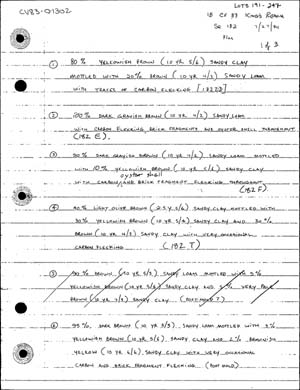 CV83-01302
LOTS 191-247
18 CV 83 KINGS REACH
SQ 182 7/27/84
1 of 3
① 80% YELLOWISH BROWN (10 YR 5/6) SANDY CLAY
MOTTLED WITH 20% BROWN (10 YR 4/3) SANDY LOAM
WITH TRACES OF CARBON FLECKING [182ZZ]
② 100% DARK GRAYISH BROWN (10 YR 4/2) SANDY LOAM
WITH CARBON FLECKING BRICK FRAGMENTS AND OYSTER SHELL THROUGHOUT
(182 E).
③ 90% DARK GRAYISH BROWN (10 YR 4/2) SANDY LOAM MOTTLED
WITH 10% YELLOWISH BROWN (10 YR 5/6) SANDY CLAY
oyster shell
WITH CARBON, AND BRICK FRAGMENT FLECKING THROUGHOUT
(182 F)
④ 40% LIGHT OLIVE BROWN (2.5 Y 5/6) SANDY CLAY MOTTLED WITH
30% YELLOWISH BROWN (10 YR 5/8) SANDY CLAY AND 30%
BROWN (10 YR 4/3) SANDY LOAM WITH VERY OCCASIONAL
CARBON FLECKING (182 T)
BROWN (10 YR 5/3) SANDY LOAM MOTTLED WITH 5%
YELLOWISH BROWN (10 YR 5/6) SANDY CLAY AND 5% VERY PALE
BROWN (10 YR 7/3) SANDY CLAY. (POSTMOLD?)
⑥ 95% DARK BROWN (10 YR 3/3) SANDY LOAM MOTTLED WITH 3%
YELLOWISH BROWN (10 YR 5/6) SANDY CLAY AND 2% BROWNISH
YELLOW (10 YR 6/6) SANDY CLAY WITH VERY OCCASIONAL
CARBON AND BRICK FRAGMENT FLECKING. (POST MOLD)